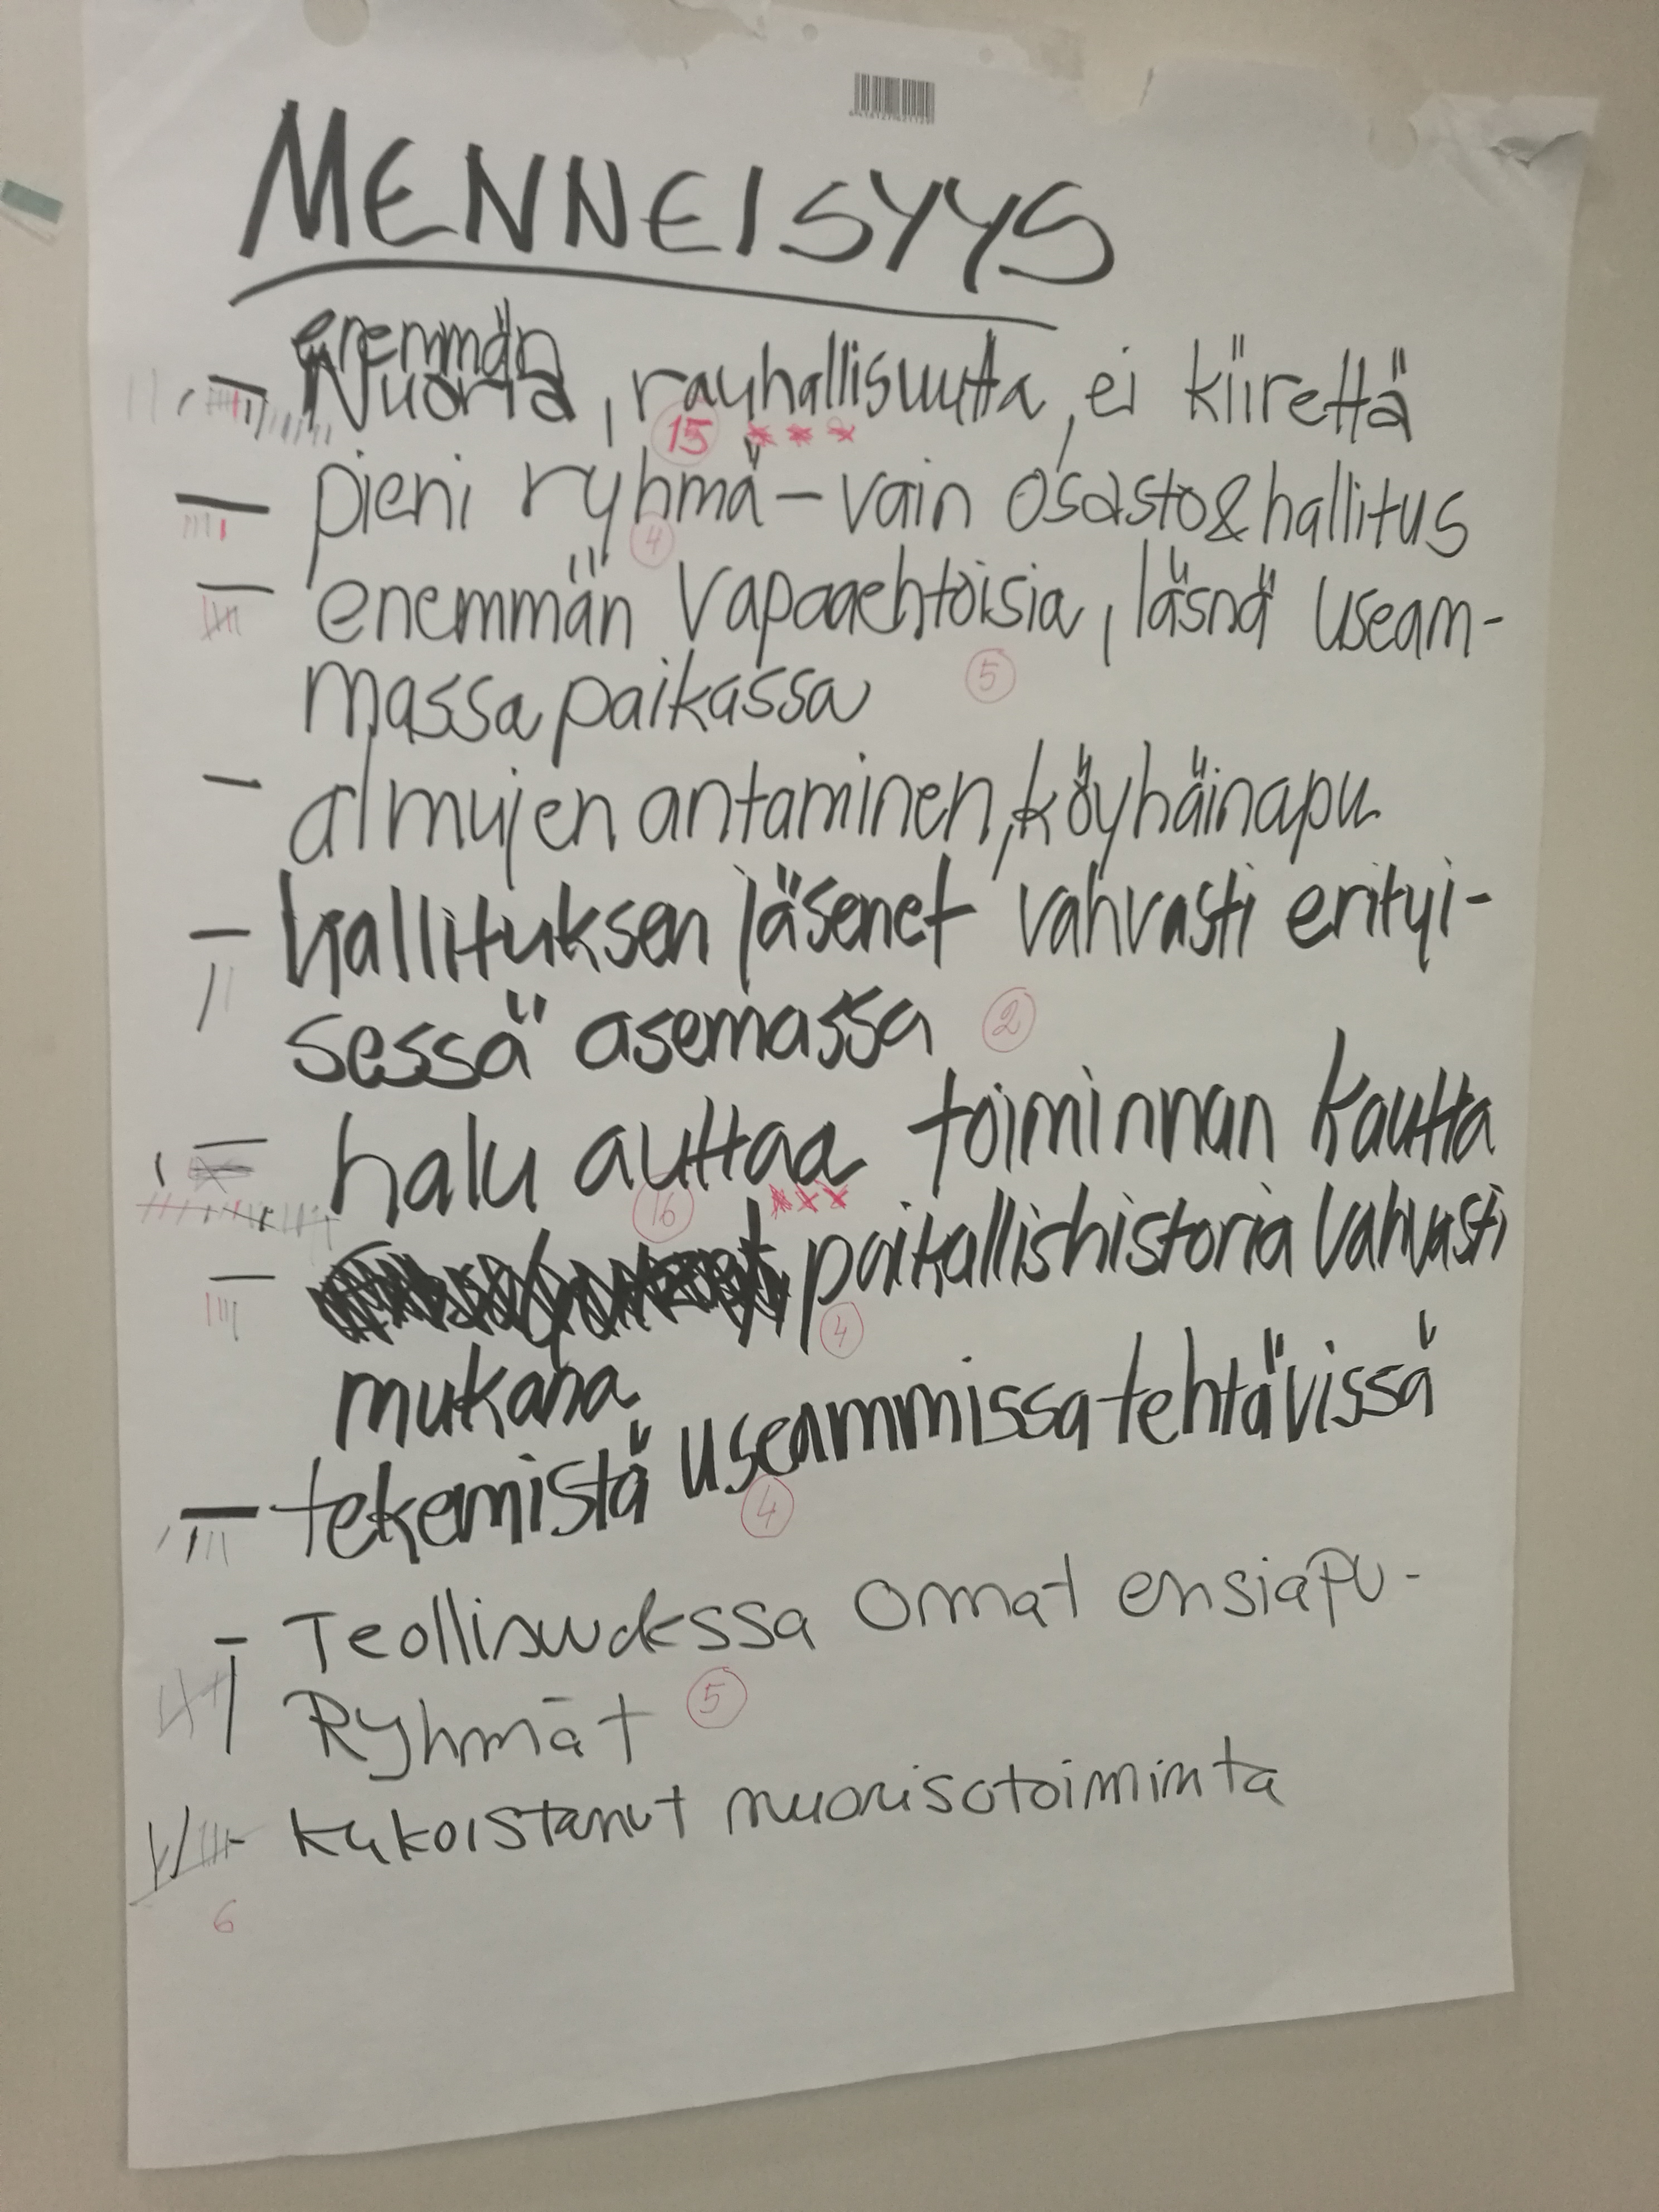 MENNEISYYS
enemmän
- Nuoria, rauhallisuutta, ei kiirettä
15 ***
- pieni ryhmä - vain osasto & hallitus
4
- enemmän vapaaehtoisia, läsnä useam-
massa paikassa 5
- almujen antaminen, köyhäinapu
- hallituksen jäsenet vahvasti erityi-
sessä asemassa 2
- halu auttaa toiminnan kautta
16 ***
- paikallishistoria vahvasti
4
mukana
- tekemistä useammissa tehtävissä
4
- Teollisuudessa omat ensiapu-
Ryhmät 5
- kukoistanut nuorisotoiminta
6